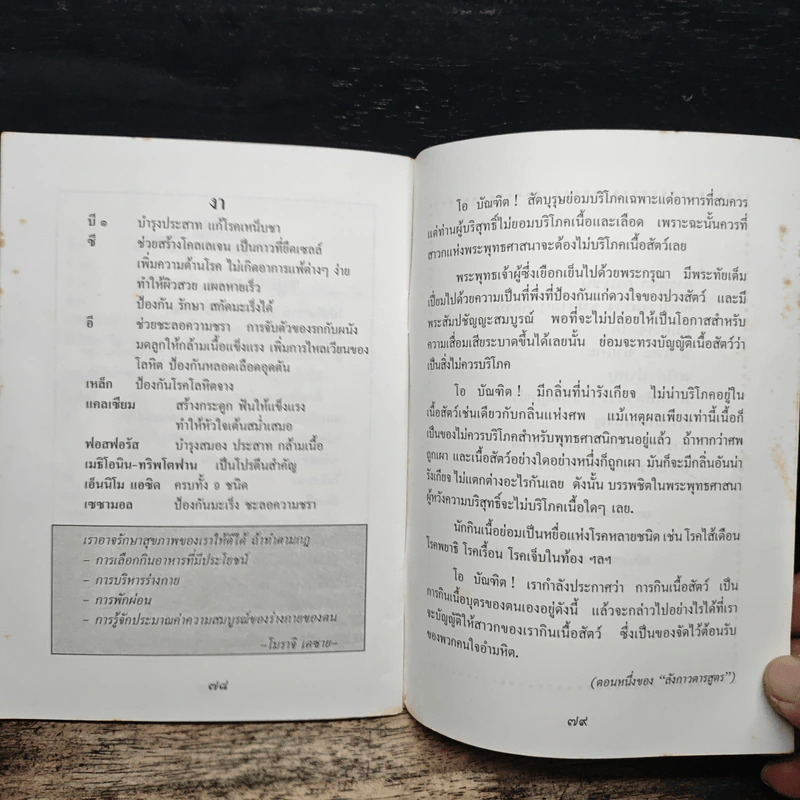 งา
บี ๑ บำรุงประสาท แก้โรคเหน็บชา
ซี ช่วยสร้างโคลเลเจน เป็นกาวที่ยึดเซลล์
เพิ่มความต้านโรค ไม่เกิดอาการแพ้ต่างๆ ง่าย
ทำให้ผิวสวย แผลหายเร็ว
ป้องกัน รักษา สกัดมะเร็งได้
อี ช่วยชะลอความชรา การจับตัวของรกกับผนัง
มดลูกให้กล้ามเนื้อแข็งแรง เพิ่มการไหลเวียนของ
โลหิต ป้องกันหลอดเลือดอุดตัน
เหล็ก ป้องกันโรคโลหิตจาง
แคลเซียม สร้างกระดูก ฟันให้แข็งแรง
ทำให้หัวใจเต้นสม่ำเสมอ
ฟอสฟอรัส บำรุงสมอง ประสาท กล้ามเนื้อ
เมธิโอนิน-ทริพโตฟาน เป็นโปรตีนสำคัญ
เอ็นนิโม แอซิด ครบทั้ง ๙ ชนิด
เซซามอล ป้องกันมะเร็ง ชะลอความชรา
เราอาจรักษาสุขภาพของเราให้ดีได้ ถ้าทำตามกฎ
– การเลือกกินอาหารที่มีประโยชน์
– การบริหารร่างกาย
– การพักผ่อน
– การรู้จักประมาณค่าความสมบูรณ์ของร่างกายของตน
–โมราจิ เดซาย–
๗๘
โอ บัณฑิต ! สัตบุรุษย่อมบริโภคเฉพาะแต่อาหารที่สมควร
แต่ท่านผู้บริสุทธิ์ไม่ยอมบริโภคเนื้อและเลือด เพราะฉะนั้นควรที่
สาวกแห่งพระพุทธศาสนาจะต้องไม่บริโภคเนื้อสัตว์เลย
พระพุทธเจ้าผู้ซึ่งเยือกเย็นไปด้วยพระกรุณา มีพระทัยเต็ม
เปี่ยมไปด้วยความเป็นที่พึ่งที่ป้องกันแก่ดวงใจของปวงสัตว์ และมี
พระสัมปชัญญะสมบูรณ์ พอที่จะไม่ปล่อยให้เป็นโอกาสสำหรับ
ความเสื่อมเสียระบาดขึ้นได้เลยนั้น ย่อมจะทรงบัญญัติเนื้อสัตว์ว่า
เป็นสิ่งไม่ควรบริโภค
โอ บัณฑิต ! มีกลิ่นที่น่ารังเกียจ ไม่น่าบริโภคอยู่ใน
เนื้อสัตว์เช่นเดียวกับกลิ่นแห่งศพ แม้เหตุผลเพียงเท่านี้เนื้อก็
เป็นของไม่ควรบริโภคสำหรับพุทธศาสนิกชนอยู่แล้ว ถ้าหากว่าศพ
ถูกเผา และเนื้อสัตว์อย่างใดอย่างหนึ่งก็ถูกเผา มันก็จะมีกลิ่นอันน่า
รังเกียจ ไม่แตกต่างอะไรกันเลย ดังนั้น บรรพชิตในพระพุทธศาสนา
ผู้หวังความบริสุทธิ์จะไม่บริโภคเนื้อใดๆ เลย.
นักกินเนื้อย่อมเป็นเหยื่อแห่งโรคหลายชนิด เช่น โรคไส้เดือน
โรคพยาธิ โรคเรื้อน โรคเจ็บในท้อง ฯลฯ
โอ บัณฑิต ! เรากำลังประกาศว่า การกินเนื้อสัตว์ เป็น
การกินเนื้อบุตรของตนเองอยู่ดังนี้ แล้วจะกล่าวไปอย่างไรได้ที่เรา
จะบัญญัติให้สาวกของเรากินเนื้อสัตว์ ซึ่งเป็นของจัดไว้ต้อนรับ
ของพวกคนใจอำมหิต.
(ตอนหนึ่งของ “ลังกาวตารสูตร”)
๗๙